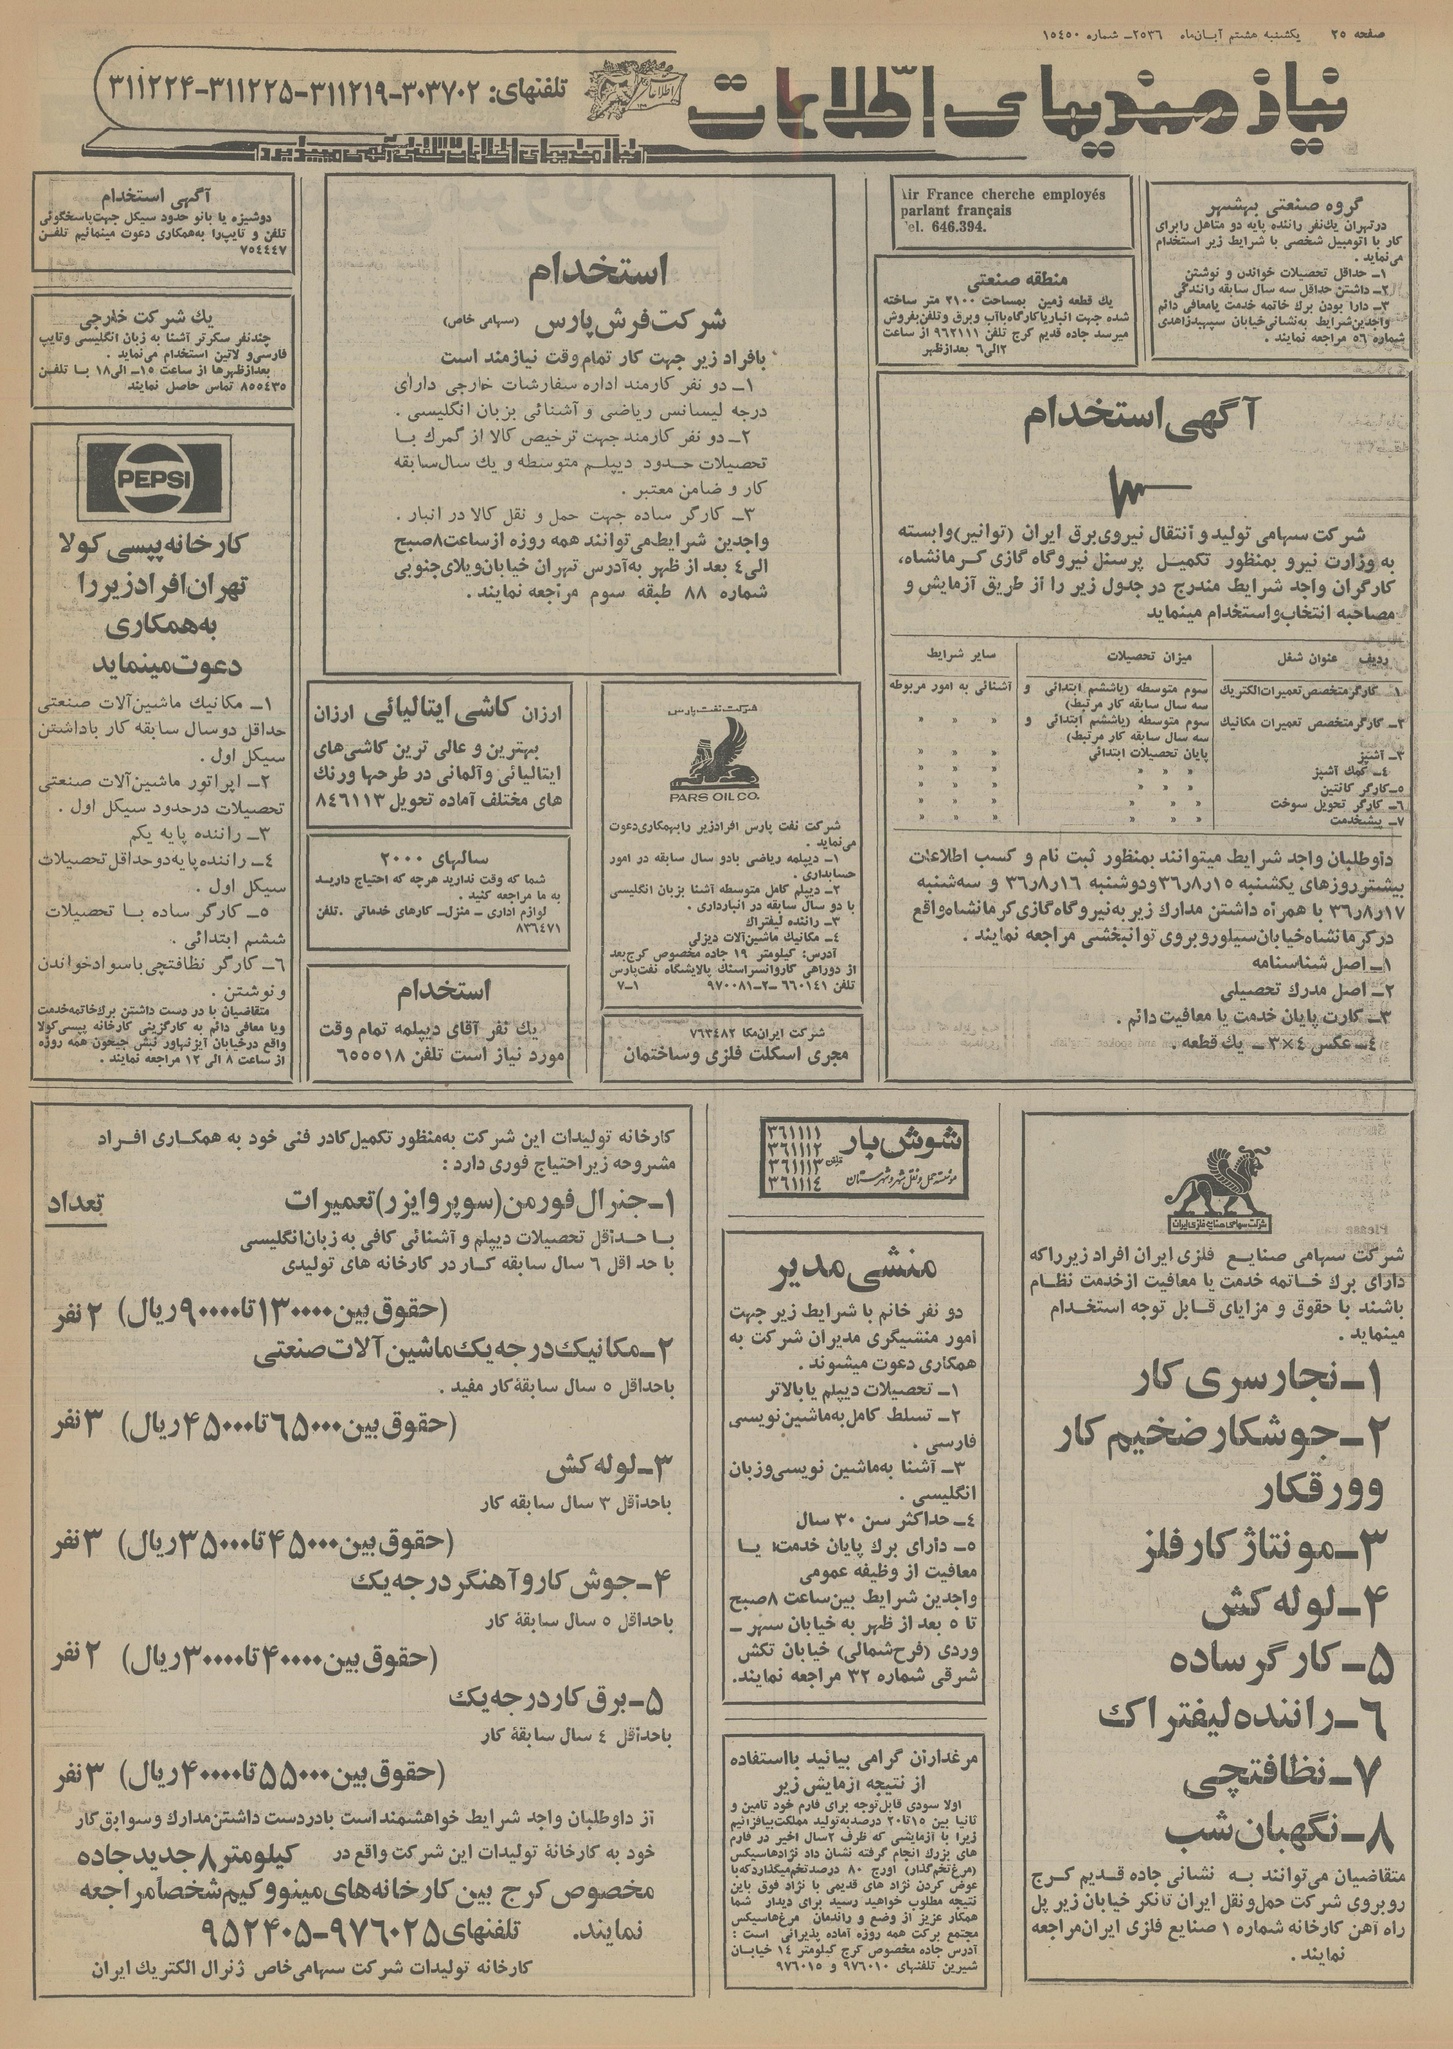 صفحه ۲۵ یکشنبه هشتم آبان‌ماه ۲۵۳۶ـ شماره ۱۵۴۵۰
نیازمندیهای اطلاعات
تلفنهای: ۳۰۳۷۰۲-۳۱۱۲۱۹-۳۱۱۲۲۵-۳۱۱۲۲۴
گروه صنعتی بهشهر
درتهران یك‌نفر راننده پایه دو متاهل رابرای
کار با اتومبیل شخصی با شرایط زیر استخدام
می‌نماید .
۱ـ حداقل تحصیلات خواندن و نوشتن
۲ـ داشتن حداقل سه سال سابقه رانندگی
۳ـ دارا بودن برك خاتمه خدمت یامعافی دائم
واجدین‌شرایط به‌نشانی‌خیابان سپهبدزاهدی
شماره ۵۶ مراجعه نمایند .
Air France cherche employés
parlant français
Tel. 646.394.
منطقه صنعتی
یك قطعه زمین بمساحت ۲۱۰۰ متر ساخته
شده جهت انباریاکارگاه‌باآب وبرق وتلفن‌بفروش
میرسد جاده قدیم کرج تلفن ۹۶۲۱۱۱ از ساعت
۲الی۶ بعدازظهر
آگهی استخدام
شرکت سهامی تولید و انتقال نیروی‌برق ایران (توانیر)وابسته
به وزارت نیرو بمنظور تکمیل پرسنل نیروگاه گازی کرمانشاه،
کارگران واجد شرایط مندرج در جدول زیر را از طریق آزمایش و
مصاحبه انتخاب‌واستخدام مینماید
ردیف عنوان شغل میزان تحصیلات سایر شرایط
۱ـ کارگرمتخصص‌تعمیرات‌الکتریك سوم متوسطه (یاششم ابتدائی و آشنائی به امور مربوطه
سه سال سابقه کار مرتبط)
۲ـ کارگرمتخصص تعمیرات مکانیك سوم متوسطه (یاششم ابتدائی و » » »
سه سال سابقه کار مرتبط)
۳ـ آشپز پایان تحصیلات ابتدائی » » »
۴ـ کمك آشپز » » » » » »
۵ـ‌کارگر کانتین » » » » » »
۶ـ کارگر تحویل سوخت » » » » » »
۷ـ پیشخدمت » » » » » »
داوطلبان واجد شرایط میتوانند بمنظور ثبت نام و کسب اطلاعات
بیشتر روزهای یکشنبه ۳۶ر۸ر۱۵ ودوشنبه ۳۶ر۸ر۱۶ و سه‌شنبه
۳۶ر۸ر۱۷ با همراه داشتن مدارك زیر به‌نیروگاه‌گازی‌کرمانشاه‌واقع
درکرمانشاه‌خیابان‌سیلوروبروی توانبخشی مراجعه نمایند .
۱ـ اصل شناسنامه
۲ـ اصل مدرك تحصیلی
۳ـ کارت پایان خدمت یا معافیت دائم .
۴ـ عکس ۴×۳ ـ یك قطعه .
استخدام
شرکت فرش پارس (سهامی خاص)
بافراد زیر جهت کار تمام‌وقت نیازمند است
۱ـ دو نفر کارمند اداره سفارشات خارجی دارای
درجه لیسانس ریاضی و آشنائی بزبان انگلیسی .
۲ـ دو نفر کارمند جهت ترخیص کالا از گمرك با
تحصیلات حدود دیپلم متوسطه و یك سال‌سابقه
کار و ضامن معتبر .
۳ـ کارگر ساده جهت حمل و نقل کالا در انبار .
واجدین شرایط‌می‌توانند همه روزه ازساعت۸صبح
الی۴ بعد از ظهر به‌آدرس تهران خیابان‌ویلای‌جنوبی
شماره ۸۸ طبقه سوم مراجعه نمایند .
آگهی استخدام
دوشیزه یا بانو حدود سیکل جهت‌پاسخگوئی
تلفن و تایپ‌را به‌همکاری دعوت مینمائیم تلفن
۷۵۴۴۴۷
یك شرکت خارجی
چندنفر سکرتر آشنا به زبان انگلیسی وتایپ
فارسی‌و لاتین استخدام می‌نماید .
بعدازظهرها از ساعت ۱۵ـ الی۱۸ با تلفن
۸۵۵۴۳۵ تماس حاصل نمایند
PEPSI
کارخانه پپسی کولا
تهران افراد زیر را
به همکاری
دعوت مینماید
۱ـ مکانیك ماشین‌آلات صنعتی
حداقل دوسال سابقه کار باداشتن
سیکل اول .
۲ـ اپراتور ماشین‌آلات صنعتی
تحصیلات درحدود سیکل اول .
۳ـ راننده پایه یکم
۴ـ راننده‌پایه‌دو‌حداقل‌تحصیلات
سیکل اول .
۵ـ کارگر ساده با تحصیلات
ششم ابتدائی .
۶ـ کارگر نظافتچی‌باسوادخواندن
و نوشتن .
متقاضیان با در دست داشتن برك‌خاتمه‌خدمت
ویا معافی دائم به کارگزینی کارخانه پپسی‌کولا
واقع درخیابان آیزنهاور نبش جیحون همه روزه
از ساعت ۸ الی ۱۲ مراجعه نمایند .
ارزان کاشی ایتالیائی ارزان
بهترین و عالی ترین کاشی‌های
ایتالیائی وآلمانی در طرحها ورنك
های مختلف آماده تحویل ۸۴۶۱۱۳
سالهای ۲۰۰۰
شما که وقت ندارید هرچه که احتیاج دارید
به ما مراجعه کنید .
لوازم اداری ـ منزل‌ـ کارهای خدماتی .تلفن
۸۳۶۴۷۱
استخدام
یك نفر آقای دیپلمه تمام وقت
مورد نیاز است تلفن ۶۵۵۵۱۸
شرکت نفت پارس
PARS OIL CO.
شرکت نفت پارس افرادزیر رابهمکاری‌دعوت
می‌نماید .
۱ـ دیپلمه ریاضی بادو سال سابقه در امور
حسابداری .
۲ـ دیپلم کامل متوسطه آشنا بزبان انگلیسی
با دو سال سابقه در انبارداری .
۳ـ راننده لیفتراك
۴ـ مکانیك ماشین‌آلات دیزلی
آدرس: کیلومتر ۱۹ جاده مخصوص کرج‌بعد
از دوراهی کاروانسراسنك پالایشگاه نفت‌پارس
تلفن ۶۶۰۱۴۱ -۲-۹۷۰۰۸۱ ۱ـ۷
شرکت ایران‌مکا ۷۶۳۴۸۲
مجری اسکلت فلزی وساختمان
شرکت سهامی صنایع فلزی ایران
شرکت سهامی صنایع فلزی ایران افراد زیر راکه
دارای برك خاتمه خدمت یا معافیت ازخدمت نظام
باشند با حقوق و مزایای قابل توجه استخدام
مینماید .
۱ـ نجار سری کار
۲ـ جوشکار ضخیم کار
وورقکار
۳ـ مونتاژ کار فلز
۴ـ لوله کش
۵ـ کارگر ساده
۶ـ راننده لیفتراک
۷ـ نظافتچی
۸ـ نگهبان شب
متقاضیان می‌توانند به نشانی جاده قدیم کرج
روبروی شرکت حمل‌ونقل ایران تانکر خیابان زیر پل
راه آهن کارخانه شماره ۱ صنایع فلزی ایران‌مراجعه
نمایند .
شوش بار تلفن
۳۶۱۱۱۱
۳۶۱۱۱۲
۳۶۱۱۱۳
۳۶۱۱۱۴
موسسه حمل و نقل شهر و شهرستان
منشی مدیر
دو نفر خانم با شرایط زیر جهت
امور منشیگری مدیران شرکت به
همکاری دعوت میشوند .
۱ـ تحصیلات دیپلم یا بالاتر
۲ـ تسلط کامل‌به‌ماشین‌نویسی
فارسی .
۳ـ آشنا به‌ماشین نویسی‌وزبان
انگلیسی .
۴ـ حداکثر سن ۳۰ سال
۵ـ دارای برك پایان خدمت یا
معافیت از وظیفه عمومی
واجدین شرایط بین‌ساعت ۸صبح
تا ۵ بعد از ظهر به خیابان سهر ـ
وردی (فرح‌شمالی) خیابان تکش
شرقی شماره ۳۲ مراجعه نمایند.
مرغداران گرامی بیائید بااستفاده
از نتیجه آزمایش زیر
اولا سودی قابل‌توجه برای فارم خود تامین و
ثانیا بین ۱۵تا۲۰ درصدبه‌تولید مملکت‌بیافزائیم
زیرا با آزمایشی که ظرف ۲سال اخیر در فارم
های بزرك انجام گرفته نشان داد نژادهاسیکس
(مرغ‌تخم‌گذار) اورج ۸۰ درصدتخم‌میگذاردکه‌با
عوض کردن نژاد های قدیمی با نژاد فوق باین
نتیجه مطلوب خواهید رسید برای دیدار شما
همکار عزیز از وضع و راندمان مرغ‌هاسیکس
مجتمع برکت همه روزه آماده پذیرائی است :
آدرس جاده مخصوص کرج کیلومتر ۱۴ خیابان
شیرین تلفنهای ۹۷۶۰۱۰ و ۹۷۶۰۱۵
کارخانه تولیدات این شرکت به‌منظور تکمیل‌کادر فنی خود به همکاری افراد
مشروحه زیر احتیاج فوری دارد :
۱ـ جنرال فورمن (سوپروایزر) تعمیرات تعداد
با حداقل تحصیلات دیپلم و آشنائی کافی به زبان‌انگلیسی
با حداقل ۶ سال سابقه کار در کارخانه های تولیدی
(حقوق بین ۱۳۰۰۰۰ تا ۹۰۰۰۰ ریال) ۲ نفر
۲ـ مکانیک درجه یک ماشین آلات صنعتی
باحداقل ۵ سال سابقهٔ کار مفید .
(حقوق بین ۶۵۰۰۰ تا ۴۵۰۰۰ ریال) ۳ نفر
۳ـ لوله کش
باحداقل ۳ سال سابقه کار
(حقوق بین ۴۵۰۰۰ تا ۳۵۰۰۰ ریال) ۳ نفر
۴ـ جوش کار و آهنگر درجه یک
باحداقل ۵ سال سابقهٔ کار
(حقوق بین ۴۰۰۰۰ تا ۳۰۰۰۰ ریال) ۲ نفر
۵ـ برق کار درجه یک
باحداقل ۴ سال سابقهٔ کار
(حقوق بین ۵۵۰۰۰ تا ۴۰۰۰۰ ریال) ۳ نفر
از داوطلبان واجد شرایط خواهشمنداست بادردست داشتن‌مدارك وسوابق‌کار
خود به کارخانهٔ تولیدات این شرکت واقع در کیلومتر ۸ جدید جاده
مخصوص کرج بین کارخانه‌های مینو و کیم شخصاً مراجعه
نمایند. تلفنهای ۹۷۶۰۲۵-۹۵۲۴۰۵
کارخانه تولیدات شرکت سهامی‌خاص ژنرال الکتریك ایران